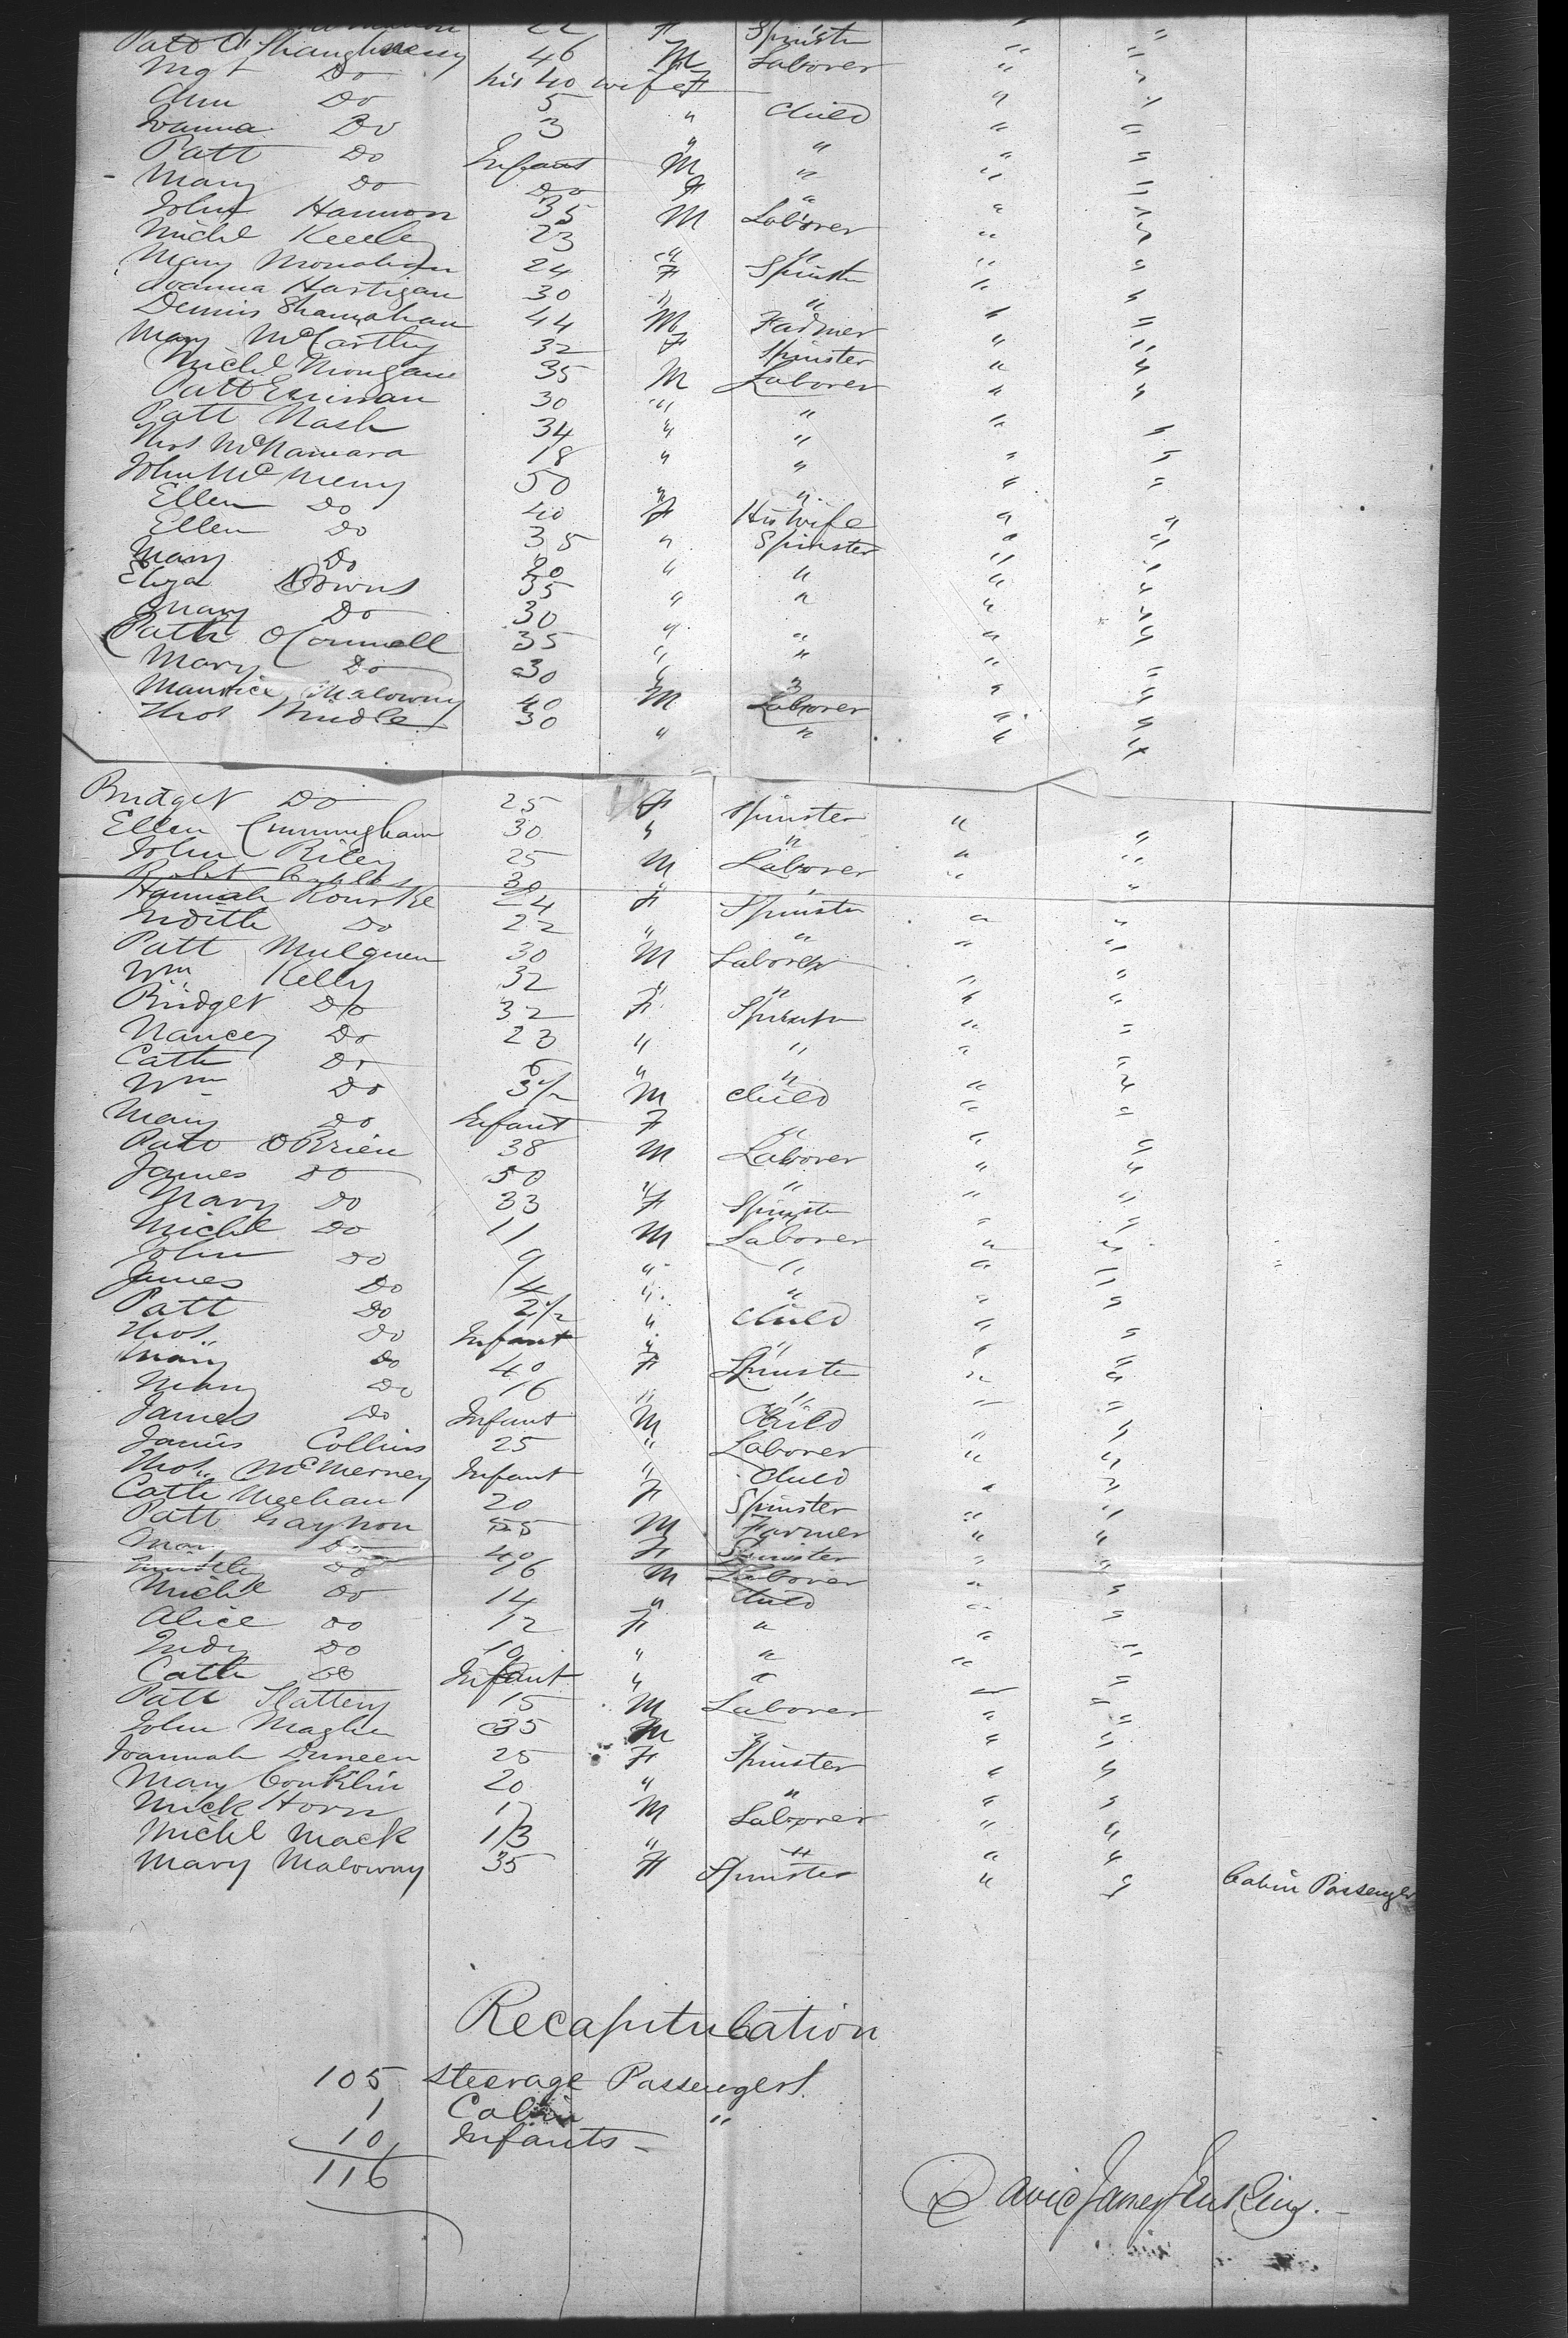 22 F Spinstr " "
Patt O'Shaughnessy 46 M Laborer " "
Mgt Do his 40 wife F " "
Ann Do 5 " Child " "
Joanna Do 3 " " " "
Patt Do Infant M " " "
Mary Do Do F " " "
John Hannon 35 M Laborer " "
Michl Keeley 23 " " " "
Mary Monahan 24 F Spinstr " "
Joanna Hartigan 30 " " " "
Dennis Shanahan 44 M Farmer " "
Mary McCarthy 32 F Spinster " "
Michl Mongane 35 M Laborer " "
Patt 30 " " " "
Patt Nash 34 " " " "
Thos McNamara 18 " " " "
John McNerny 50 " " " "
Ellen Do 40 F His Wife " "
Ellen Do 35 " Spinster " "
Mary Do 20 " " " "
Eliza Downs 35 " " " "
Mary Do 30 " " " "
Cath OConnell 35 " " " "
Mary Do 30 " " " "
Maurice Malowny 40 M Laborer " "
Thos 30 " " " "
Bridget Do 25 F Spinster " "
Ellen Cunningham 30 " " " "
John Riley 25 M Laborer " "
Robt 30 " " " "
Hannah Rourke 24 F Spinstr " "
Judith Do 22 " " " "
Patt Mulqueen 30 M Laborer " "
Wm Kelly 32 " " " "
Bridget Do 32 F Spinstr " "
Nancey Do 23 " " " "
Cath Do 6 " " " "
Wm Do 3½ M Child " "
Mary Do Infant F " " "
Patt OBrien 38 M Laborer " "
James Do 50 " " " "
Mary Do 33 F Spinstr " "
Michl Do 11 M Laborer " "
John Do 9 " " " "
James Do 4 " " " "
Patt Do 2½ " Child " "
Thos Do Infant " " " "
Mary Do 40 F Spinster " "
Mary Do 16 " " " "
James Do Infant M Child " "
James Collins 25 " Laborer " "
Thos McNerney Infant " Child " "
Cath Meehan 20 F Spinster " "
Patt Gaynon 55 M Farmer " "
Mary Do 40 F Spinister " "
Do 16 M Laborer " "
Michl Do 14 " Child " "
Alice Do 12 F " " "
Judy Do 10 " " " "
Cath Do Infant " " " "
Patt Slattery 15 M Laborer " "
John Magher 35 M " " "
Joannah Duneen 25 F Spinster " "
Mary Conklin 20 " " " "
Mick Horn 17 M Laborer " "
Michl Mack 13 " " " "
Mary Malowny 35 F Spinster " " Cabin Passenger
Recapitulation
105 Steerage Passengers.
1 Cabin "
10 Infants
116
David James Jenkins.